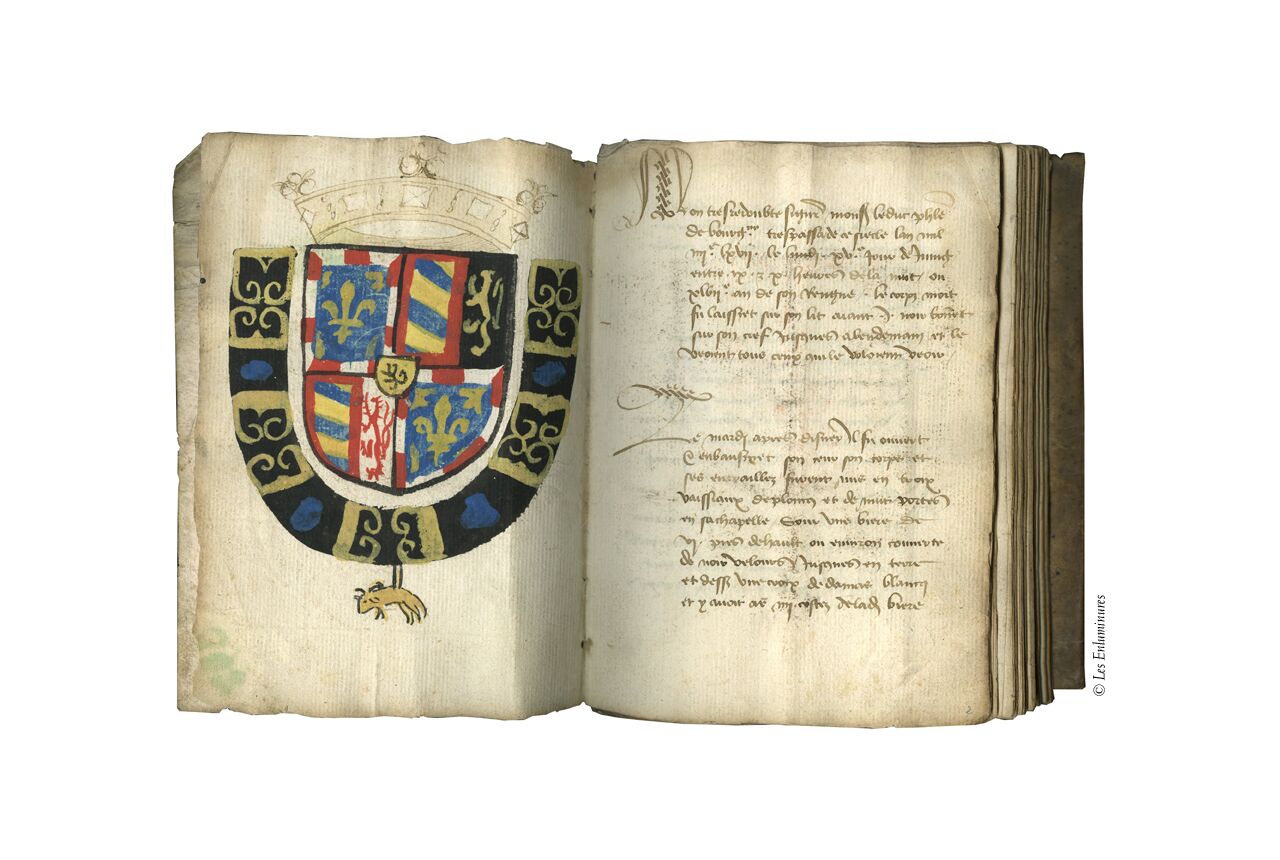 Mon tresredoubte seignr monsr leduc phle
de bourgne trespassa de ce siecle lan mil
iiijc lxvij · le lundi · xve jour de Juing
entre ix · z x · heures dela nuit · ou
xlviije · an de son Rengne · le corps mort
fu laissiet sur son lit aiant j · noir bonnet
sur son cief Jusques alendemain et le
veoient tous ceux qui le voloient veoir ·
Le mardi apres disner Il fu ouvert
z enbausmet son ceur son corps et
ses entrailles furent mis en trois
vaissiaux de plomcq et de nuit portes
en sa chapelle Sour une biere de
vj · pies de hault ou environ couverte
de noir velours Jusques en terre
et dessr une croix de damas blancq
et y avoit as iiij costez delad biere
2
© Les Enluminures